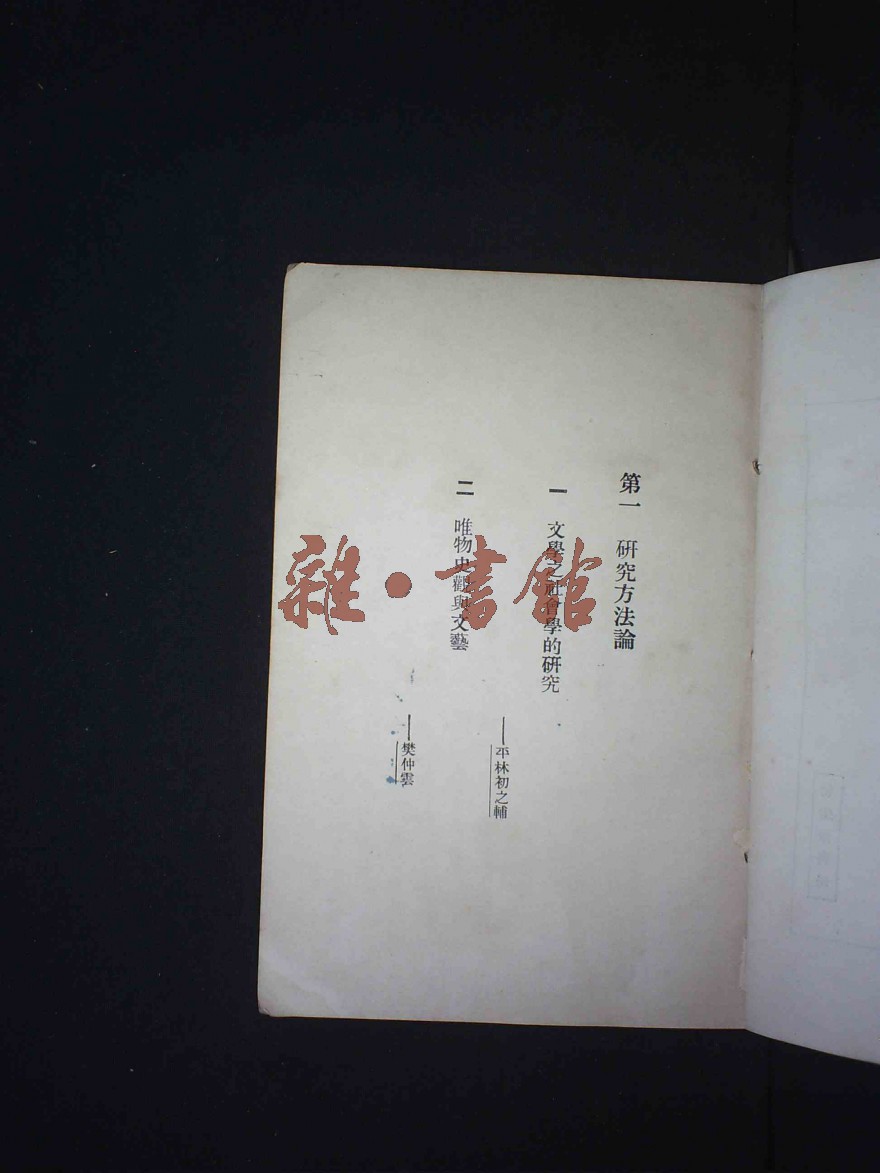 第一　研究方法論
一　文學之社會學的研究
——平林初之輔
二　唯物史觀與文藝
——樊仲雲
雜·書館